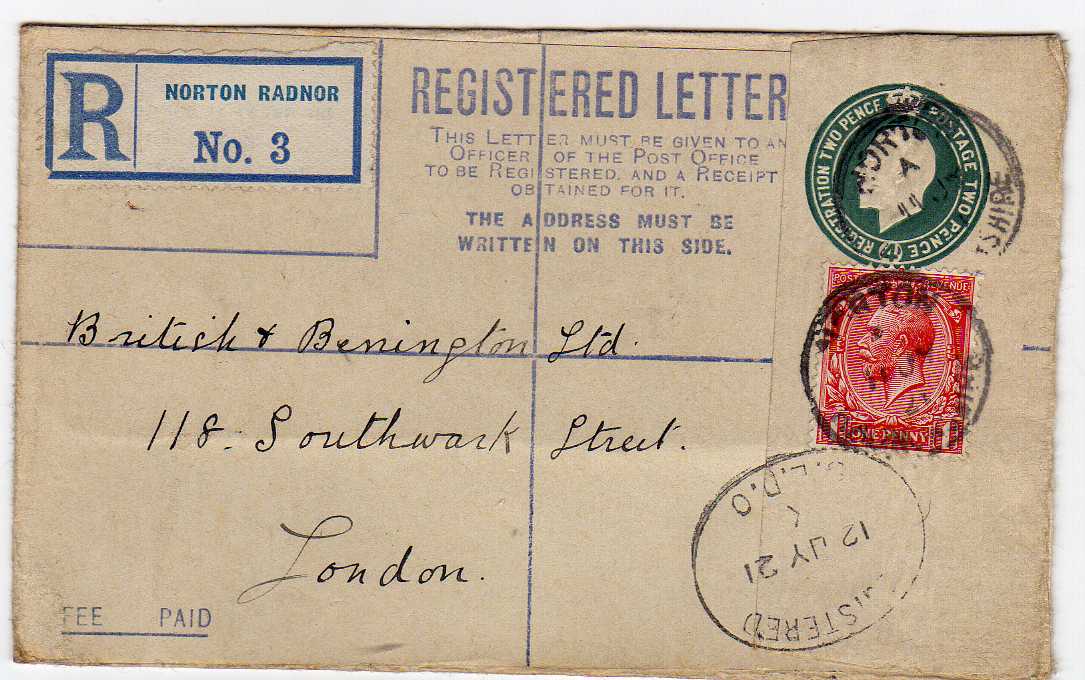 R
NORTON RADNOR
No. 3
REGISTERED LETTER
THIS LETTER MUST BE GIVEN TO AN
OFFICER OF THE POST OFFICE
TO BE REGISTERED, AND A RECEIPT
OBTAINED FOR IT.
THE ADDRESS MUST BE
WRITTEN ON THIS SIDE.
REGISTRATION TWO PENCE POSTAGE TWO PENCE
(4)
NORTON
A
SHIRE
British & Benington Ltd.
118. Southwark Street.
London.
POSTAGE REVENUE
1 ONE PENNY 1
REGISTERED
12 JY 21
S.L.D.O
FEE PAID